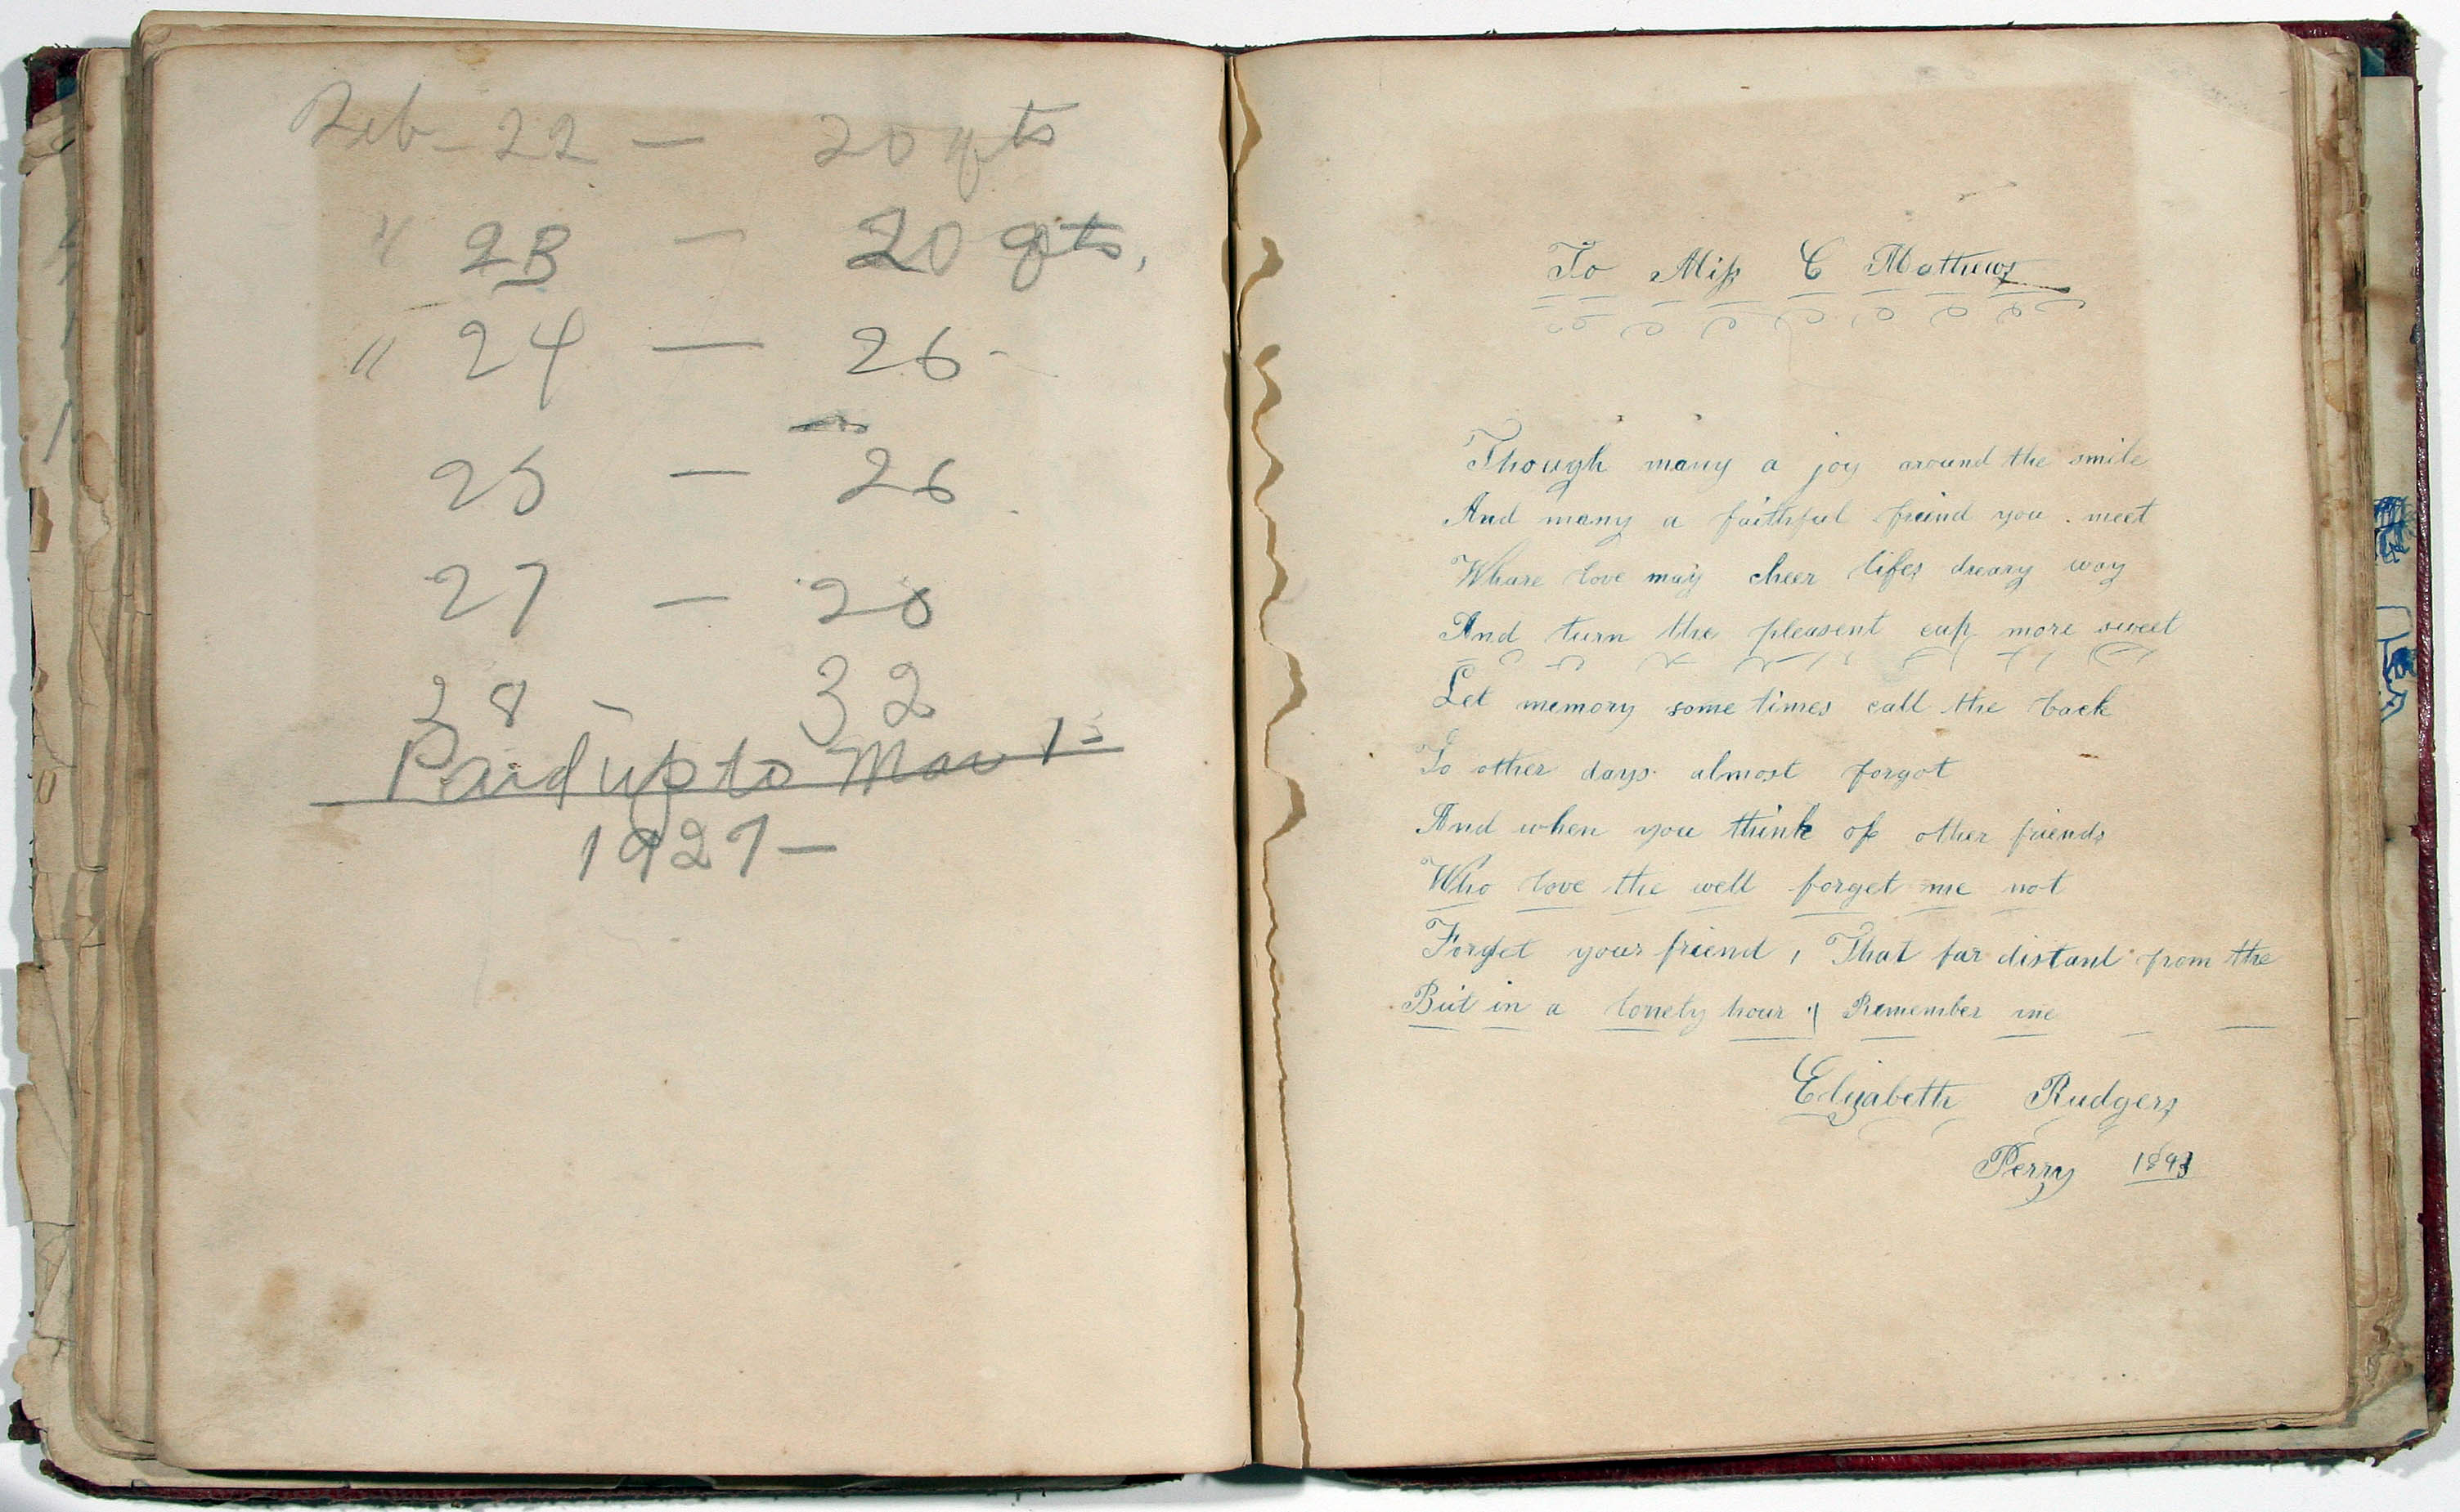 Feb - 22 — 20 qts
" 23 — 20 qts,
" 24 — 26 -
25 — 26
27 — 
28 - 32
Paid up to Mar 1-
1927 —
To Miss C Mathews
Though many a joy around the smile
And many a faithful friend you . meet
Whare love may cheer lifes dreary way
And turn the pleasent cup more sweet
Let memory some times call the back
To other days almost forgot
And when you think of other friends
Who love the well forget me not
Forget your friend , That far distant from the
But in a lonely hour Remember me
Elizabeth Rudgers
Perry